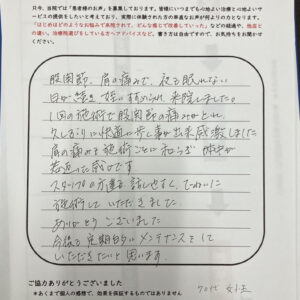 日今、当院では「患者様のお声」を募集しております。皆様にいつまでも心地よい治療と心地よいサ
ービスの提供をしたいと考えており、実際に体験された方の率直なお声が何よりの力となります。
「はじめはどのようなお悩みで来院されて、どんな感じで改善していった」などの経過や、他店と
の違い、治療院選びをしている方へアドバイスなど、書き方は自由ですので、お気持ちをお聞かせ
ください。
股関節、肩の痛みで、夜も眠れない
日が続き 姪にすすめられ 来院しました。
1回の施術で股関節の痛みがとれ
久しぶりに快適に歩く事が出来感激しました
肩の痛みも施術ごとに和らぎ 背中が
若返った感じです
スタッフの方達も 話しやすく、ていねいに
施術して いただきました
ありがとう ございました
今後も定期的にメンテナンスをして
いただきたいと思います。
ご協力ありがとうございました
※あくまで個人の感想で、効果を保証するものではありません
70代 女性